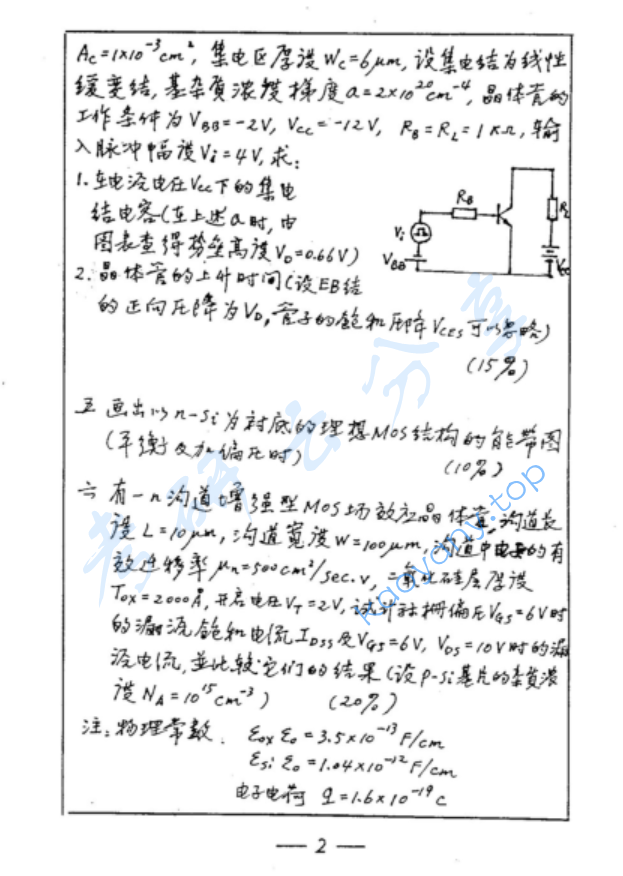 Ac=1×10⁻³cm², 集电区厚度Wc=6μm, 设集电结为线性
缓变结, 基杂质浓度梯度a=2×10²⁰cm⁻⁴, 晶体管的
工作条件为VBB=-2V, Vcc=-12V, RB=RL=1KΩ, 输
入脉冲幅度Vi=4V, 求:
1. 在电源电压Vcc下的集电
结电容(在上述a时, 由
图表查得势垒高度VD=0.66V)
2. 晶体管的上升时间(设EB结
的正向压降为VD, 管子的饱和压降VCES可以忽略)
(15%)
RB
RL
Vi
VBB
Vcc
五 画出以n-Si为衬底的理想MOS结构的能带图
(平衡及加偏压时) (10%)
六 有一n沟道增强型MOS场效应晶体管, 沟道长
度L=10μm, 沟道宽度W=100μm, 沟道中电子的有
效迁移率μn=500cm²/sec.v, 二氧化硅层厚度
Tox=2000Å, 开启电压VT=2V, 试计算栅偏压VGS=6V时
的漏源饱和电流IDSS及VGS=6V, VDS=10V时的漏
源电流, 並比较它们的结果(设P-Si基片的杂质浓
度NA=10¹⁵cm⁻³) (20%)
注: 物理常数. εoxε₀=3.5×10⁻¹³F/cm
εsiε₀=1.04×10⁻¹²F/cm
电子电荷 q=1.6×10⁻¹⁹c
考研云分享
kaoyany.top
— 2 —